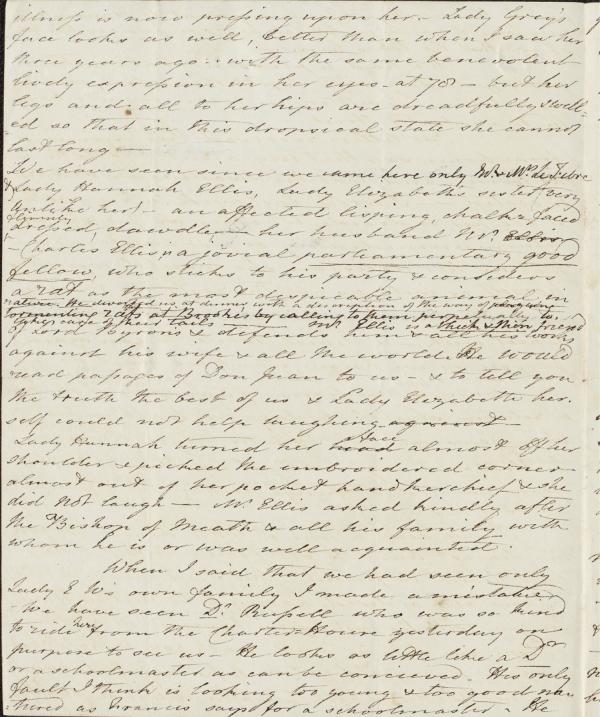 illness is now pressing upon her. Lady Grey's
face looks as well, better than when I saw her
three years ago - with the same benevolent
lively expression in her eyes - at 78 - but her
legs and all to her hips are dreadfully swell-
-ed so that in this dropsical state she cannot
last long —
We have seen since we came here only Mr. & Mrs. Le Febre
& Lady Hannah Ellis, Lady Elizabeth's sister (very
unlike her) - an affected lisping, chalky faced
finely
dressed, dawdle - her husband Mr. Ellis
- Charles Ellis is a jovial parliamentary good
fellow, who sticks to his party & considers
a rat as the most despicable animal in
nature. He diverted us at dinner with a description of the way of
tormenting rats at Brooks's by calling to them perpetually to
take care of their tails — Mr. Ellis is a thick & thin friend
of Lord Byron's & defends him & all his works
against his wife & all the world. He would
read passages of Don Juan to us - & to tell you
the truth the best of us & Lady Elizabeth her-
self could not help laughing against —
Lady Hannah turned her head face almost off her
shoulder & picked the embroidered corner
almost out of her pocket handkerchief & she
did not laugh — Mr. Ellis asked kindly after
the Bishop of Meath & all his family with
whom he is or was well acquainted.
When I said that we had seen only
Lady E W's own family I made a mistake
- We have seen Dr. Russell who was so kind
to ride here from the Charter-House yesterday on
purpose to see us - He looks as little like a Dr
or a schoolmaster as can be concieved. His only
fault I think is looking too young & too good na-
-tured as Francis says for a schoolmaster. He